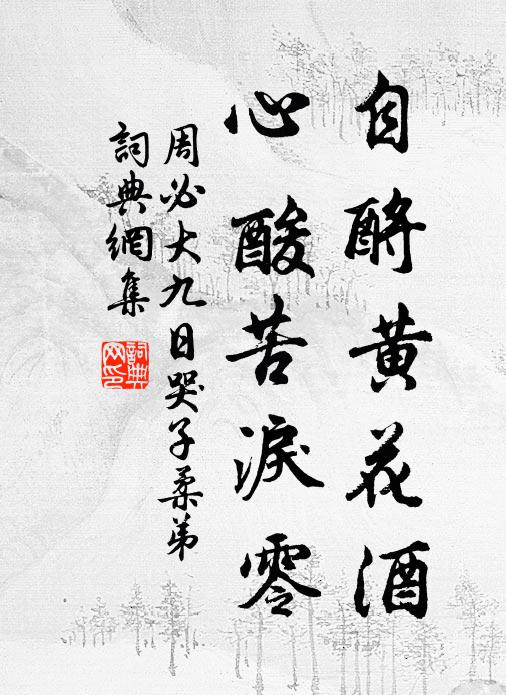 自酹黄花酒
心酸苦淚零
周必大九日哭子柔弟
詞典網集
詞典網印